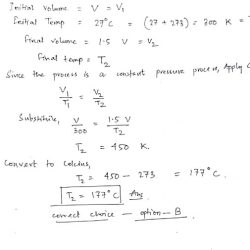 Initial volume = V = V₁
Initial Temp = 27°C = (27 + 273) = 300 K =
Final volume = 1.5 V = V₂
Final temp = T₂
Since the process is a constant pressure process, Apply
V₁/T₁ = V₂/T₂
Substitute, V/300 = 1.5 V/T₂
T₂ = 450 K.
Convert to Celcius,
T₂ = 450 - 273 = 177°C.
T₂ = 177°C Ans.
correct choice - option - B.